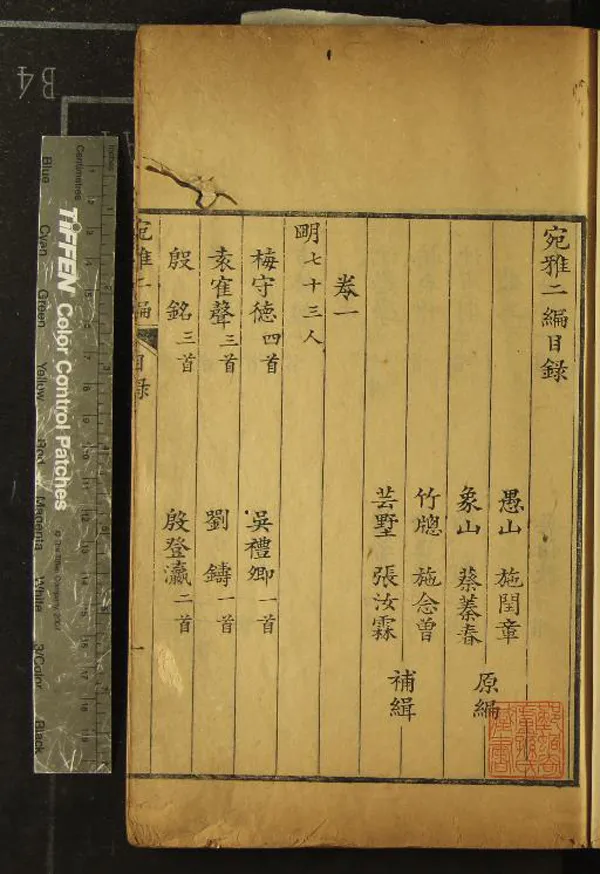 宛雅二編目録
愚山 施閏章
象山 蔡蓁春
原編
竹牕 施念曾
芸墅 張汝霖
補緝
卷一
明七十三人
梅守德四首 吳禮卿一首
袁寉聲三首 劉鑄一首
殷銘三首 殷登瀛二首
宛雅二編 目録 一
B4
Inches
Centimetres
TIFFEN Color Control Patches
© The Tiffen Company, 2007
Blue
Cyan
Green
Yellow
Red
Magenta
White
3/Color
Black